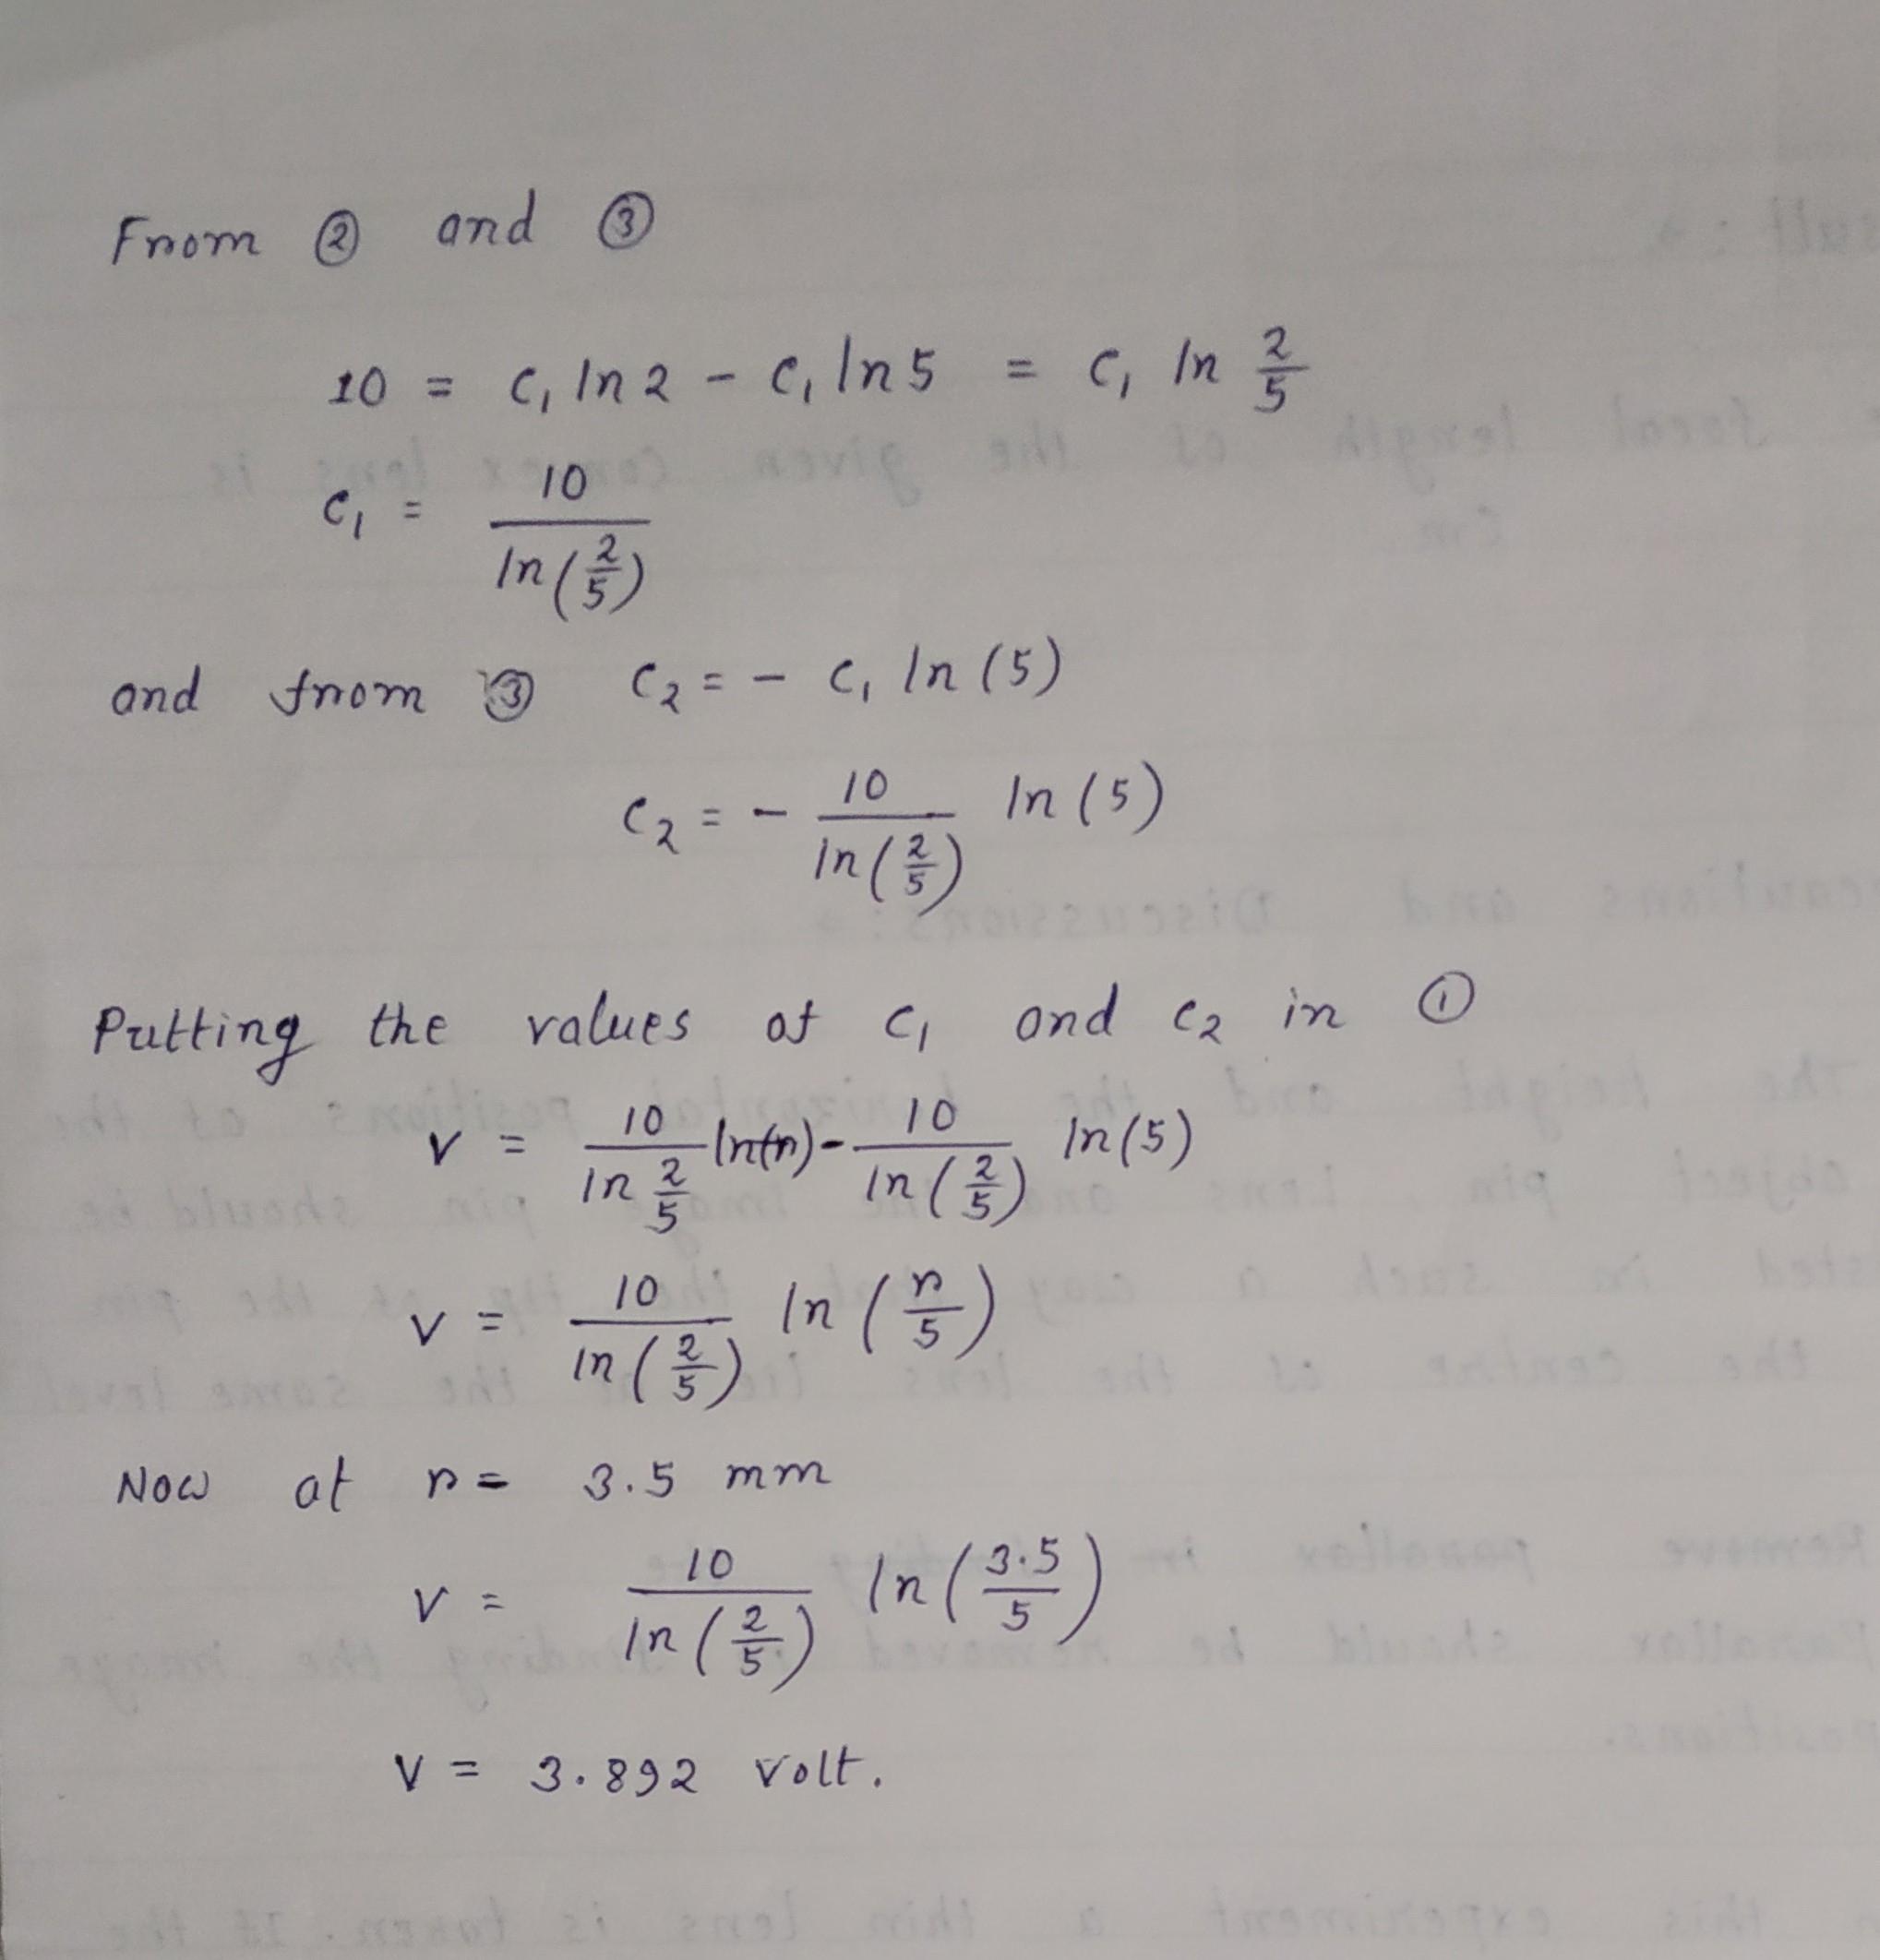 From ② and ③
10 = C₁ ln 2 - C₁ ln 5 = C₁ ln 2/5
C₁ = 10 / ln(2/5)
and from ③ C₂ = - C₁ ln (5)
C₂ = - 10 / ln(2/5) ln (5)
Putting the values of C₁ and C₂ in ①
V = 10 / ln 2/5 ln(r) - 10 / ln(2/5) ln(5)
V = 10 / ln(2/5) ln (r/5)
Now at r = 3.5 mm
V = 10 / ln(2/5) ln (3.5/5)
V = 3.892 volt.